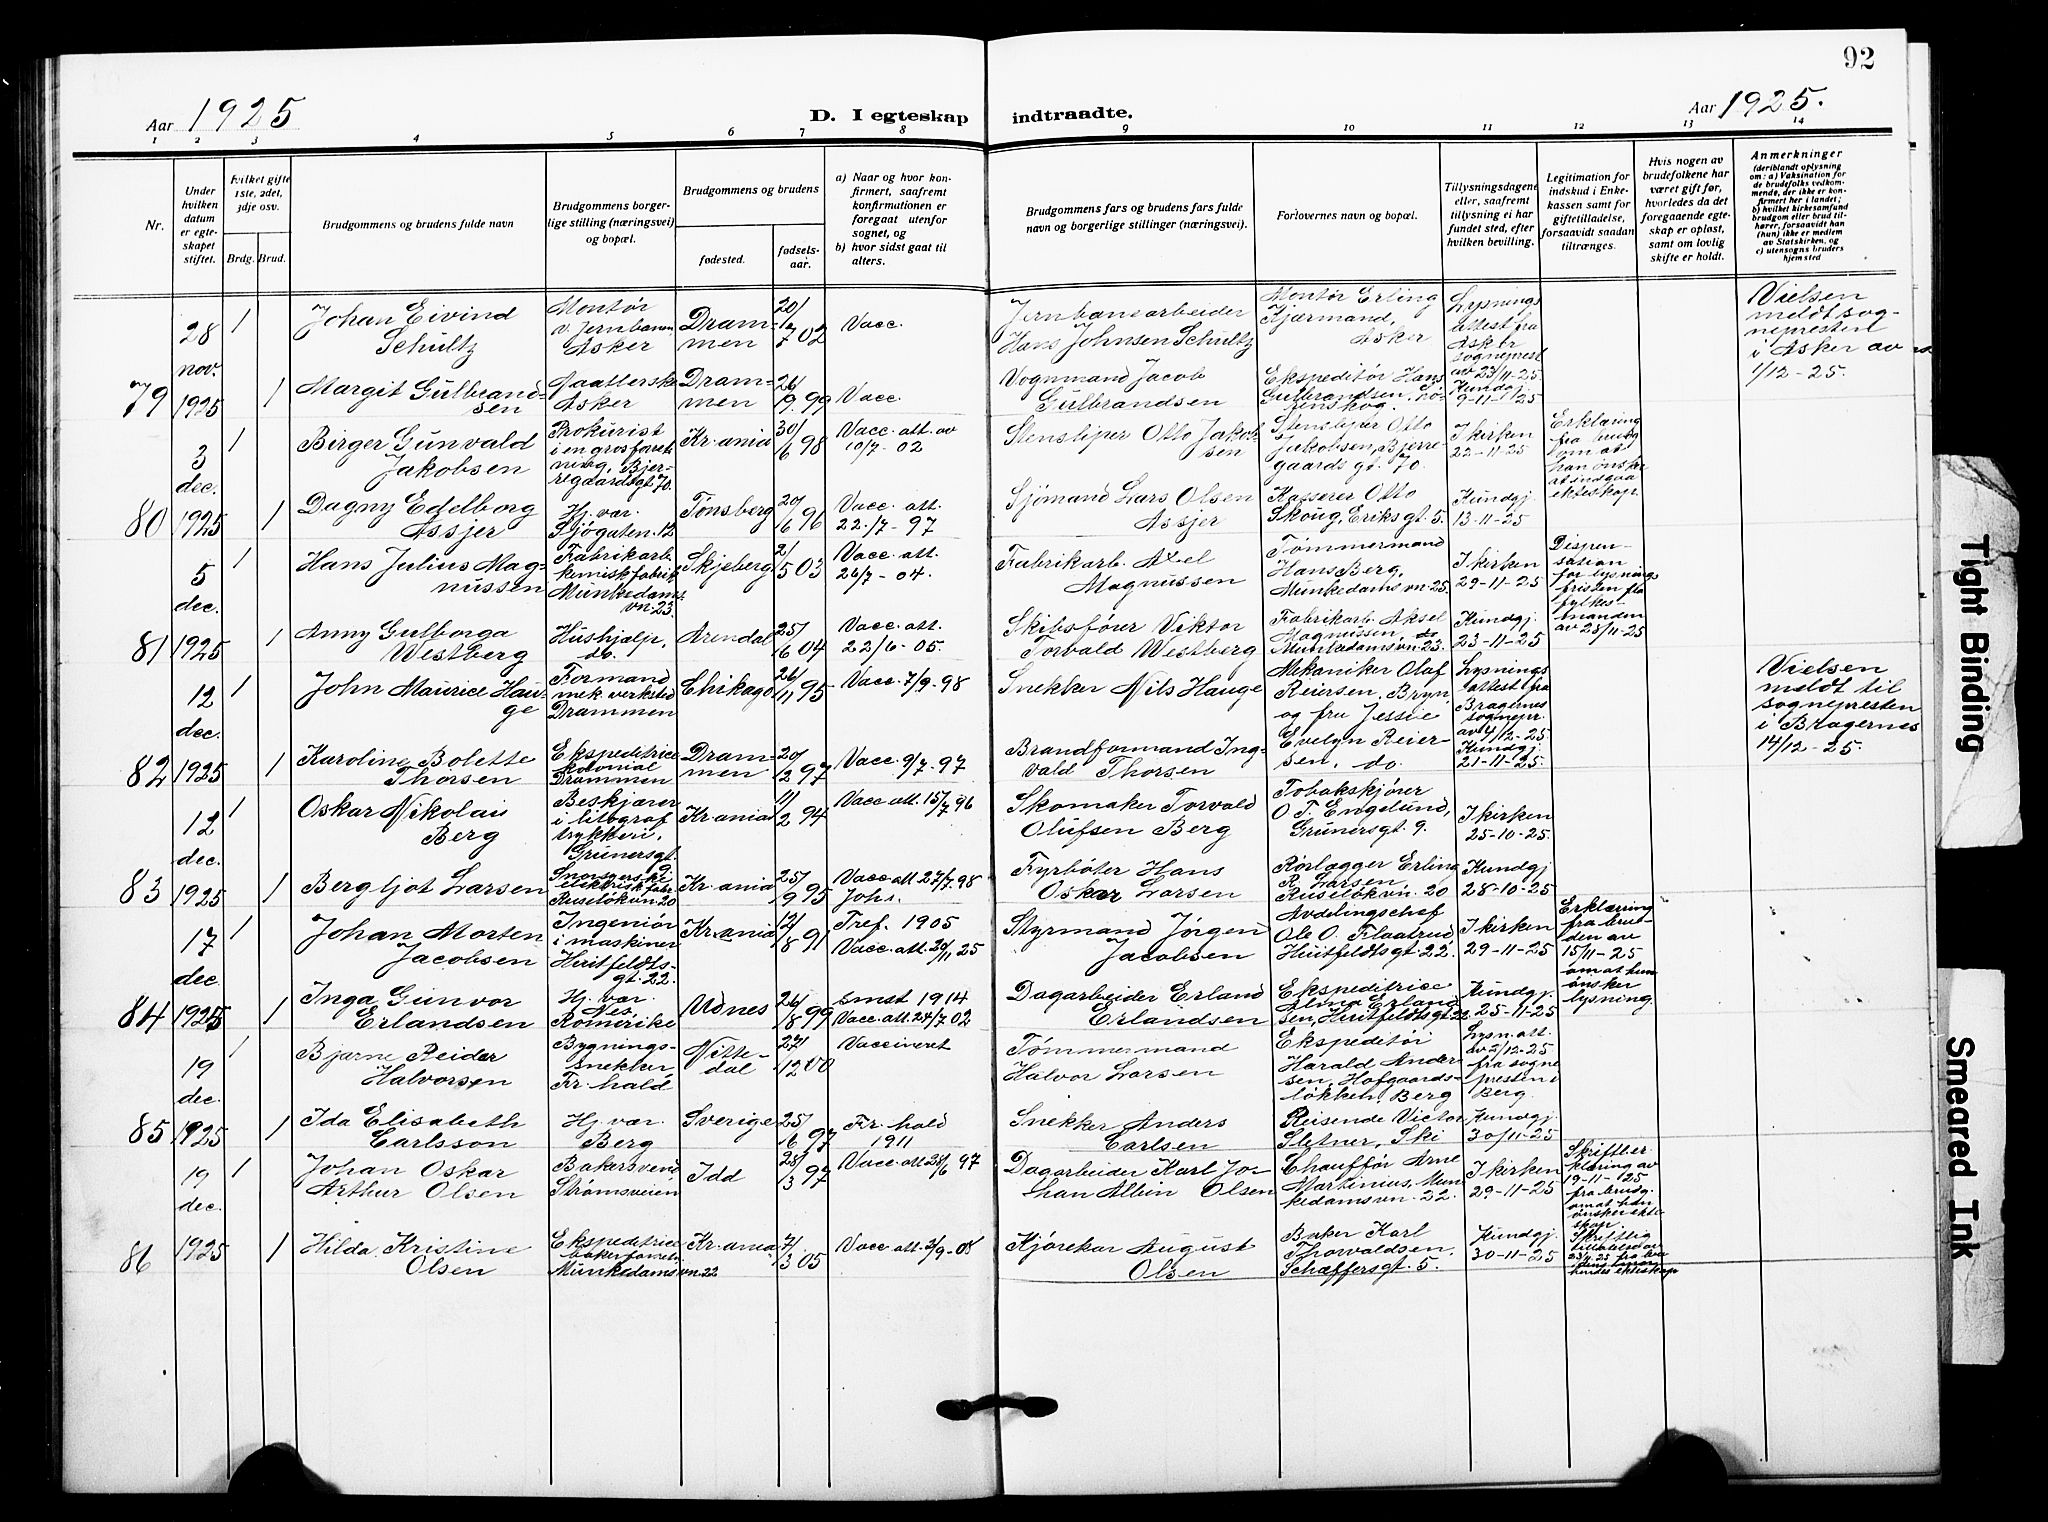 92
Aar 1925
D. I egteskap indtraadte.
Aar 1925.
1 2 3 4 5 6 7 8 9 10 11 12 13 14
Nr.
Under hvilken datum er egteskapet stiftet.
Hvilket gifte 1ste, 2det, 3dje osv.
Brdg. Brud.
Brudgommens og brudens fulde navn
Brudgommens borgerlige stilling (næringsvei) og bopæl.
Brudgommens og brudens
fødested.
fødselsaar.
a) Naar og hvor konfirmert, saafremt konfirmationen er foregaat utenfor sognet, og
b) hvor sidst gaat til alters.
Brudgommens fars og brudens fars fulde navn og borgerlige stillinger (næringsvei).
Forlovernes navn og bopæl.
Tillysningsdagene eller, saafremt tillysning ei har fundet sted, efter hvilken bevilling.
Legitimation for indskud i Enkekassen samt for giftetilladelse, forsaavidt saadan tiltrænges.
Hvis nogen av brudefolkene har været gift før, hvorledes da det foregaaende egteskap er opløst, samt om lovlig skifte er holdt.
Anmerkninger (deriblandt oplysning om: a) Vaksination for de brudefolks vedkommende, der ikke er konfirmert her i landet; b) hvilket kirkesamfund brudgom eller brud tilhører, forsaavidt han (hun) ikke er medlem av Statskirken, og c) utensogns bruders hjemsted
79 28 nov. 1925
1 Johan Eivind Schultz
Montør v. Jernbanen Asker
Drammen 20/7 02
Vacc.
Jernbanearbeider Hans Johnsen Schultz
Montør Erling Kjærmand, Asker
Lysningsattest fra Asker sogneprest av 23/11-25
Vielsen meldt sognepresten i Asker av 1/12-25.
1 Margit Gulbrandsen
Asker
Drammen 26/9 99
Vacc.
Vognmand Jacob Gulbrandsen
Ekspeditør Hans Gulbrandsen,
Kundgj. 9-11-25
80 3 dec. 1925
1 Birger Gunvald Jakobsen
Prokurist i engrosforretning, Bjerregaardsgt 70.
Kr.ania 30/6 98
Vacc. att. av 10/7-02
Stensliper Otto Jakobsen
Stensliper Otto Jakobsen, Bjerregaards gt. 70.
I kirken 22-11-25
Erklæring fra brudg om at han ønsker at indgaa ekteskap.
1 Dagny Edelborg Assjer
Hj. vær. Sjøgaten 12
Tønsberg 20/6 96
Vacc. att. 22/7-97
Sjømand Lars Olsen Assjer
Kasserer Otto Skoug, Eriks gt. 5.
Kundgj 13-11-25
81 5 dec. 1925
1 Hans Julius Magnussen
Fabrikarb. kemisk fabrik Munkedamsvn. 23.
Skjeberg 2/5 03
Vacc. att. 26/7-04.
Fabrikarb. Axel Magnussen
Tømmermand Hans Berg, Munkedamsvn. 25.
I kirken 29-11-25
Dispensation for lysningsfristen fra fylkesmanden av 25/11-25
1 Anny Gulborga Westberg
Hushjelp, do.
Arendal 25/6 04
Vacc. att. 22/6-05.
Skibsfører Viktor Torvald Westberg
Fabrikarb. Aksel Magnussen, do Munkedamsvn. 23.
Kundgj. 23-11-25
82 12 dec. 1925
1 John Maurice Hauge
Formand mek. verksted Drammen
Chikago 26/11 95
Vacc. 7/9-98
Snekker Nils Hauge
Mekaniker Olaf Reiersen, Bryn, og fru Jessie Evelyn Reiersen, do.
Lysningsattest fra Bragernes sognepr. av 4/12-25
Vielsen meldt til sognepresten i Bragernes 14/12-25.
1 Karoline Bolette Thorsen
Ekspeditrice kolonial Drammen
Drammen 20/2 97
Vacc. 9/7-97
Brandformand Ingvald Thorsen
Kundgj. 21-11-25.
83 12 dec. 1925
1 Oskar Nikolai Berg
Beskjærer i litograf trykkeri, Grünersgt. 9.
Kr.ania 11/2 94
Vacc att. 15/7 96
Skomaker Torvald Olufsen Berg
Tobakskjører O. T. Engelund, Grünersgt. 9.
I kirken 25-10-25.
1 Bergljot Larsen
elektrisk fabr. Ruseløkvn 20
Kr.ania 25/9 95
Vacc. att 27/7-98 Joh.
Fyrbøter Hans Oskar Larsen
Rørlægger Erling R. Larsen, Ruseløkvn. 20
Kundgj 28-10-25
84 17 dec. 1925
1 Johan Morten Jacobsen
Ingeniør i maskiner Huitfeldtsgt. 22.
Kr.ania 12/8 91
Tref. 1905 Vacc. att. 20/11 25
Styrmand Jørgen Jacobsen
Avdelingschef Ole O. Flaatrud, Huitfeldtsgt. 22.
I kirken 29-11-25
Erklæring fra bruden av 15/11-25 om at hun ønsker lysning.
1 Inga Gunvor Erlandsen
Hj. vær. Nes, Romerike
Udnes 26/8 99
Emst 1914 Vacc. att. 24/7 02
Dagarbeider Erland Erlandsen
Ekspeditrice Alma Erlandsen, Huitfeldtsgt. 22
Kundgj. 25-11-25
85 19 dec. 1925
1 Bjarne Reidar Halvorsen
Bygningssnekker, Fr.hald
Nittedal 27/12 00
Vaccineret
Tømmermand Halvor Larsen
Ekspeditør Harald Andersen, Hofgaardsløkken, Berg
Lysn. att. av 2/12-25 fra sognepresten i Berg.
1 Ida Elisabeth Carlsson
Hj. vær. Berg
Sverige 25/6 97
Fr. hald 1911
Snekker Anders Carlsen
Reisende Victor Sletner, Ski
Kundgj. 30/11-25
86 19 dec. 1925
1 Johan Oskar Arthur Olsen
Bakersvend Strømsveien
Idd 28/3 97
Vacc. att 28/6 97
Dagarbeider Karl Johan Albin Olsen
Chauffør Arne Martinius, Munkedamsvn. 22.
I kirken 29-11-25
Skriftl erklæring av 19-11-25 fra brudg. om at han ønsker ekteskap.
1 Hilda Kristine Olsen
Ekspeditrice bakerforretn Munkedamsvn. 22
Kr.ania 7/3 05
Vacc. att. 3/9-08
Kjørekar August Olsen
Baker Karl Thorvaldsen, Schæffersgt. 5.
Kundgj. 30-11-25
Skriftlig
Tight Binding
Smeared Ink